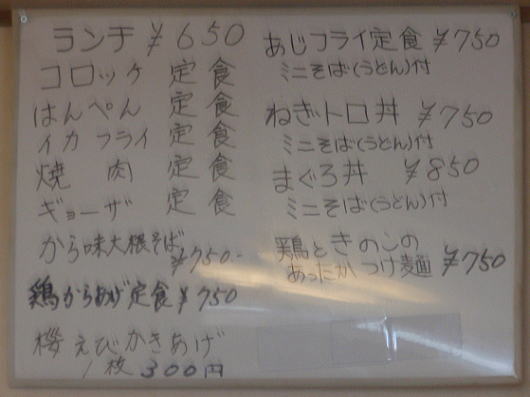 ランチ ¥650
コロッケ 定食
はんぺん 定食
イカフライ 定食
焼肉 定食
ギョーザ 定食
から味大根そば
¥750-
鶏からあげ定食 ¥750
桜えびかきあげ
1枚 300円
あじフライ定食 ¥750
ミニそば(うどん)付
ねぎトロ丼 ¥750
ミニそば(うどん)付
まぐろ丼 ¥850
ミニそば(うどん)付
鶏ときのこの
あったかつけ麺 ¥750